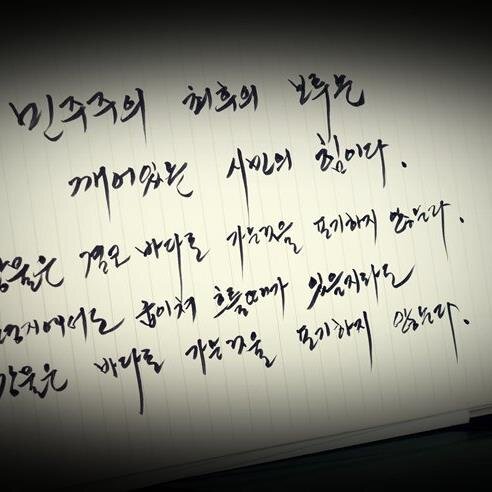 민주주의 최후의 보루는
깨어있는 시민의 힘이다.
강물은 결코 바다로 가는것을 포기하지 않는다.
굽이쳐 흐를때가 있을지라도
강물은 바다로 가는것을 포기하지 않는다.